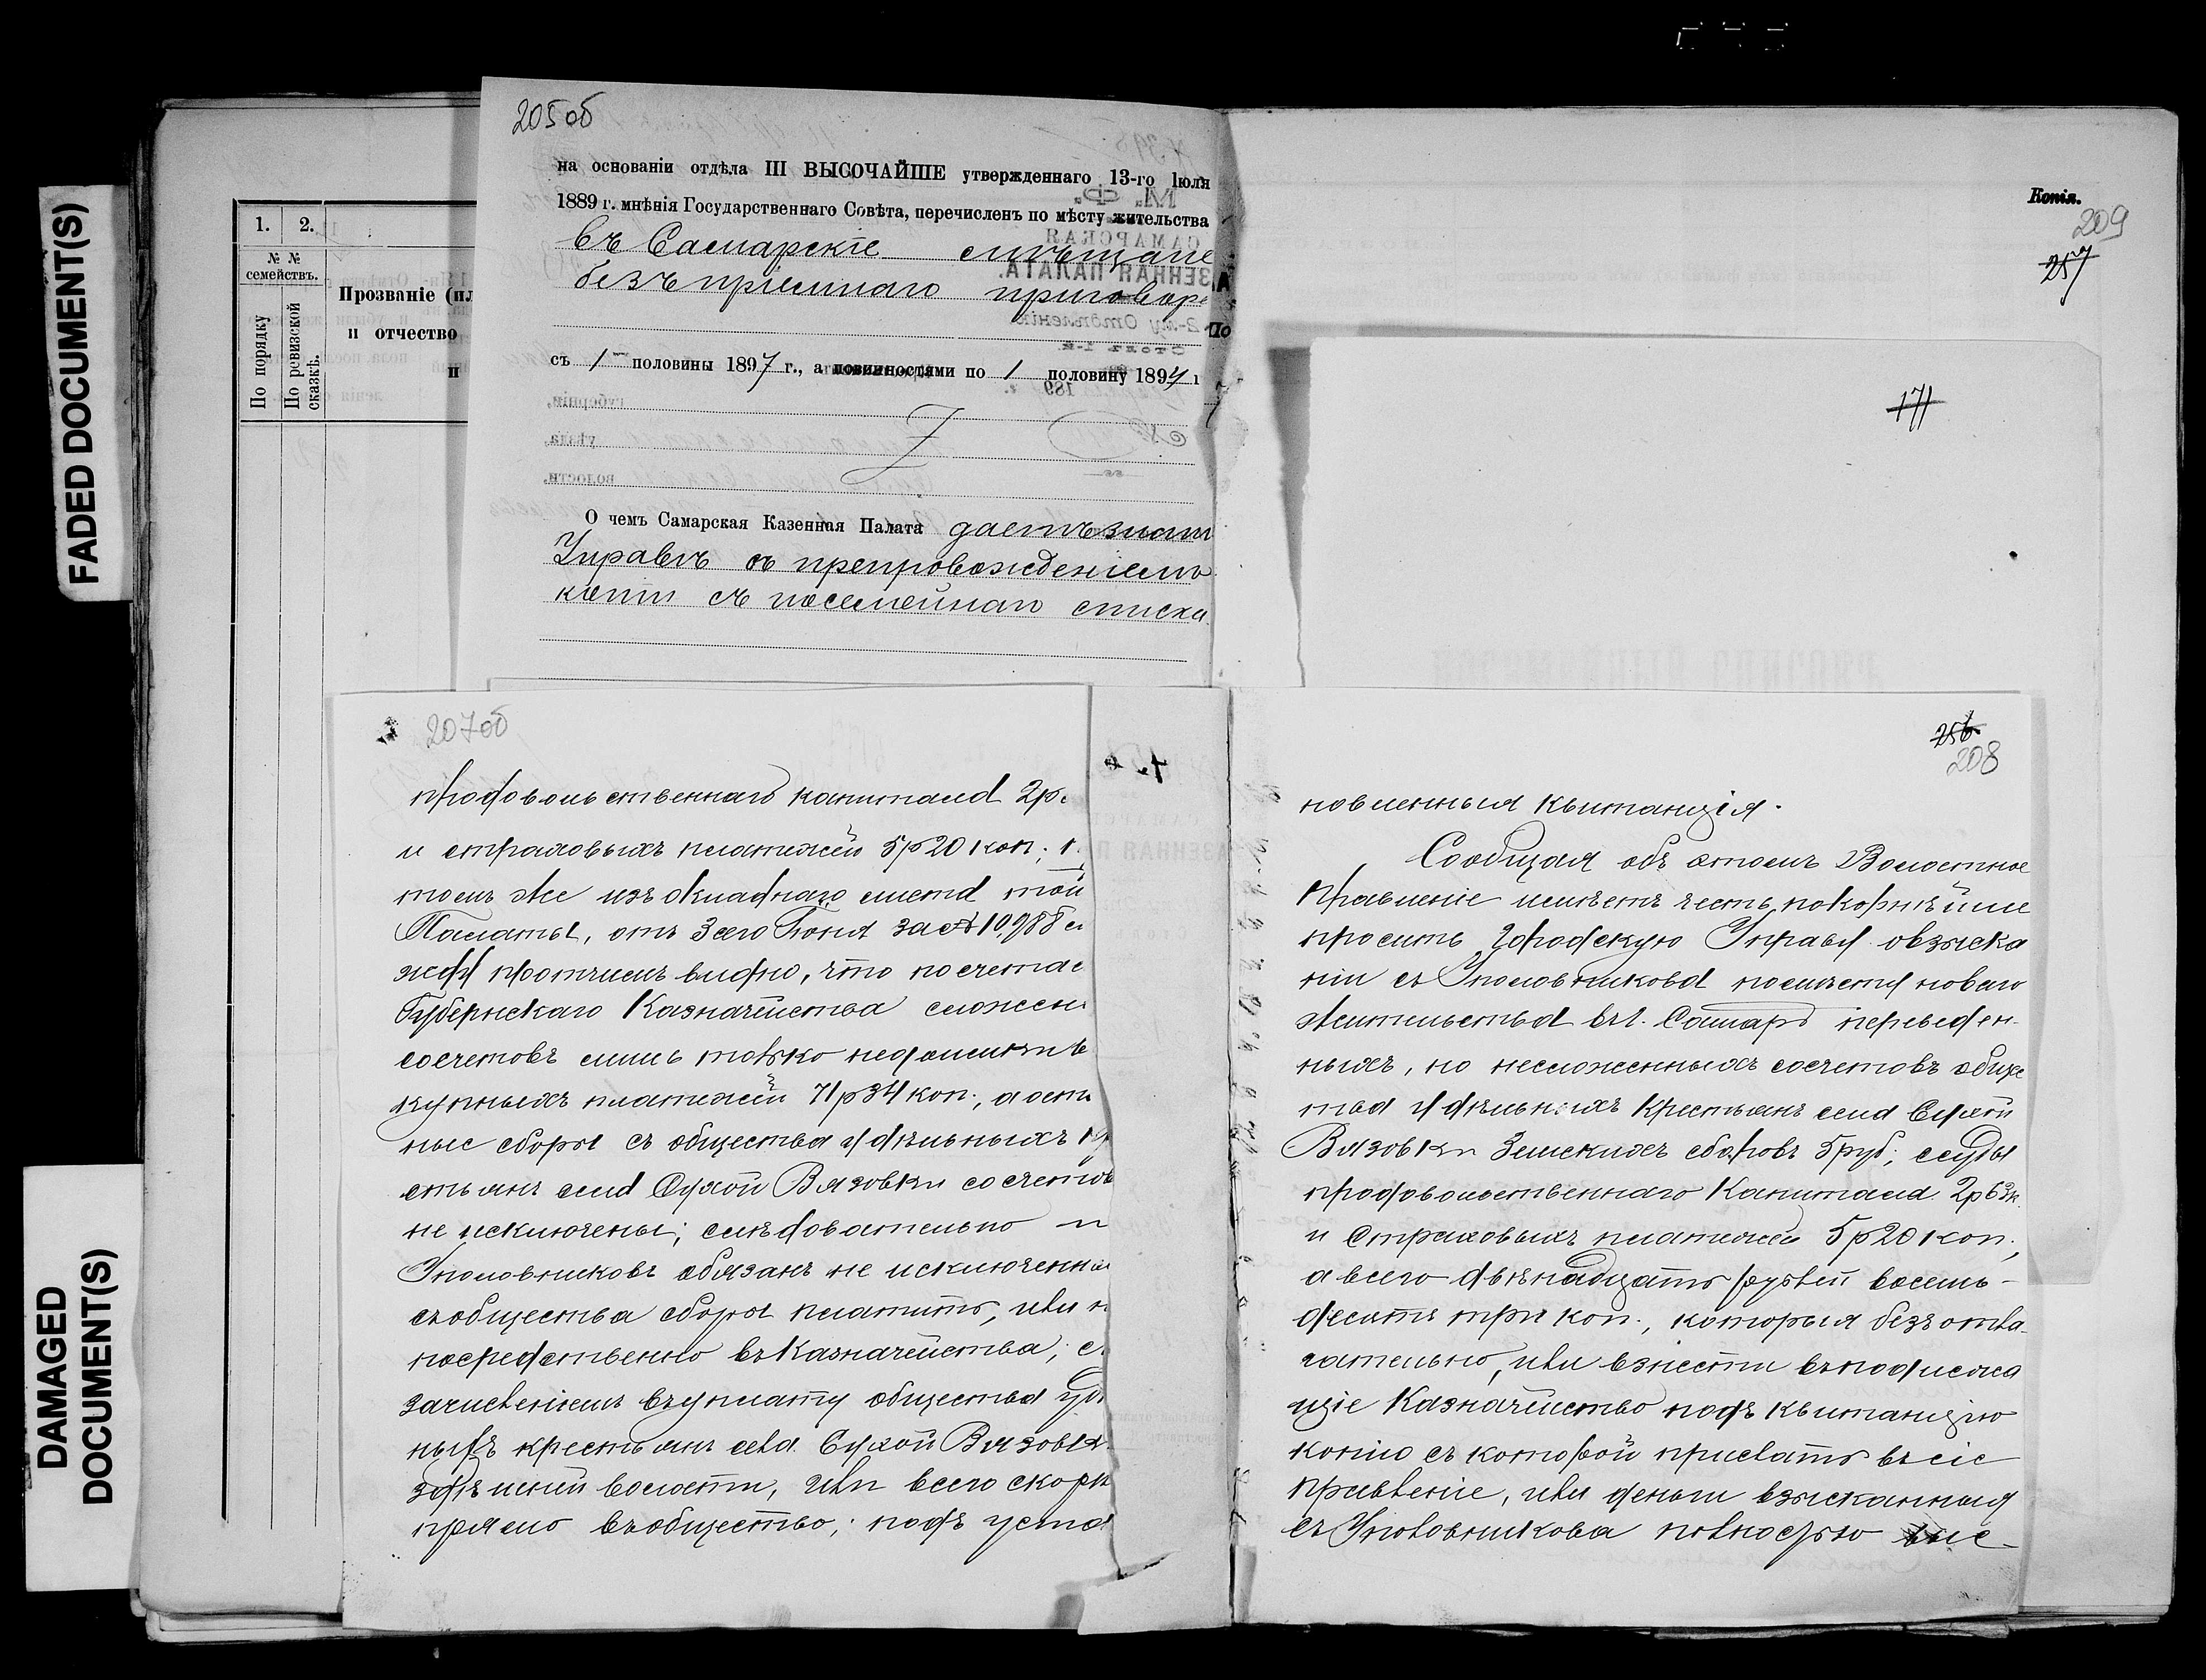 FADED DOCUMENT(S)
DAMAGED
DOCUMENT(S)
1. 2.
№ №
семействъ.
По порядку
По ревизской
сказкѣ.
Прозваніе
и отчество
и
205об
на основаніи отдѣла III ВЫСОЧАЙШЕ утвержденнаго 13-го Іюля
1889 г. мнѣнія Государственнаго Совѣта, перечисленъ по мѣсту жительства
въ Самарскіе мѣщане
безъ пріемнаго приговор
съ 1 половины 1897 г., а повинностями по 1 половину 1897 г
О чемъ Самарская Казенная Палата даетъ знать
Управѣ съ препровожденіемъ
копіи съ посемейнаго списка.
207об
продовольственнаго капитала 2р.
и страховыхъ платежей 5р20коп;
томъ же изъ окладнаго листа той
Палаты, отъ 3его Іюня за № 10,988
видно, что по счетам
Губернскаго Казначейства сложен
со счетовъ лишь только недоимки
купныхъ платежей 71р34коп., а ост
ные сборы съ общества удѣльныхъ кр
стьянъ села Сухой Вязовки со счетов
не исключены; слѣдовательно и
Уполовниковъ обязанъ не исключенны
съ общества сборы платить, или н
посредственно въ Казначейства, с
зачисленіемъ въ уплату общества удѣ
ныхъ крестьянъ села Сухой Вязовк
здѣшней волости, или всего скорѣ
прямо въ общество, подъ уста
256
208
новленныя квитанція.
Сообщая объ этомъ Волостное
Правленіе имѣетъ честь покорнѣйше
просить Городскую Управу о взыска
ніи съ Уполовникова по мѣсту новаго
жительства въ г. Самарѣ переведен
ныхъ, но несложенныхъ со счетовъ обще
тва удѣльныхъ крестьянъ села Сухой
Вязовки Земскихъ сборовъ 5руб; ссуды
продовольственнаго Капитала 2р63к.
и Страховыхъ платежей 5р20коп;
а всего двѣнадцать рублей восемь-
десятъ три коп., которыя безъ отла-
гательно, или взнести въ подлежа
щіе Казначейство подъ квитанцію
копію съ которой прислать въ сіе
Правленіе, или деньги взысканныя
съ Уполовникова полностью вы
Копія.
209
257
171